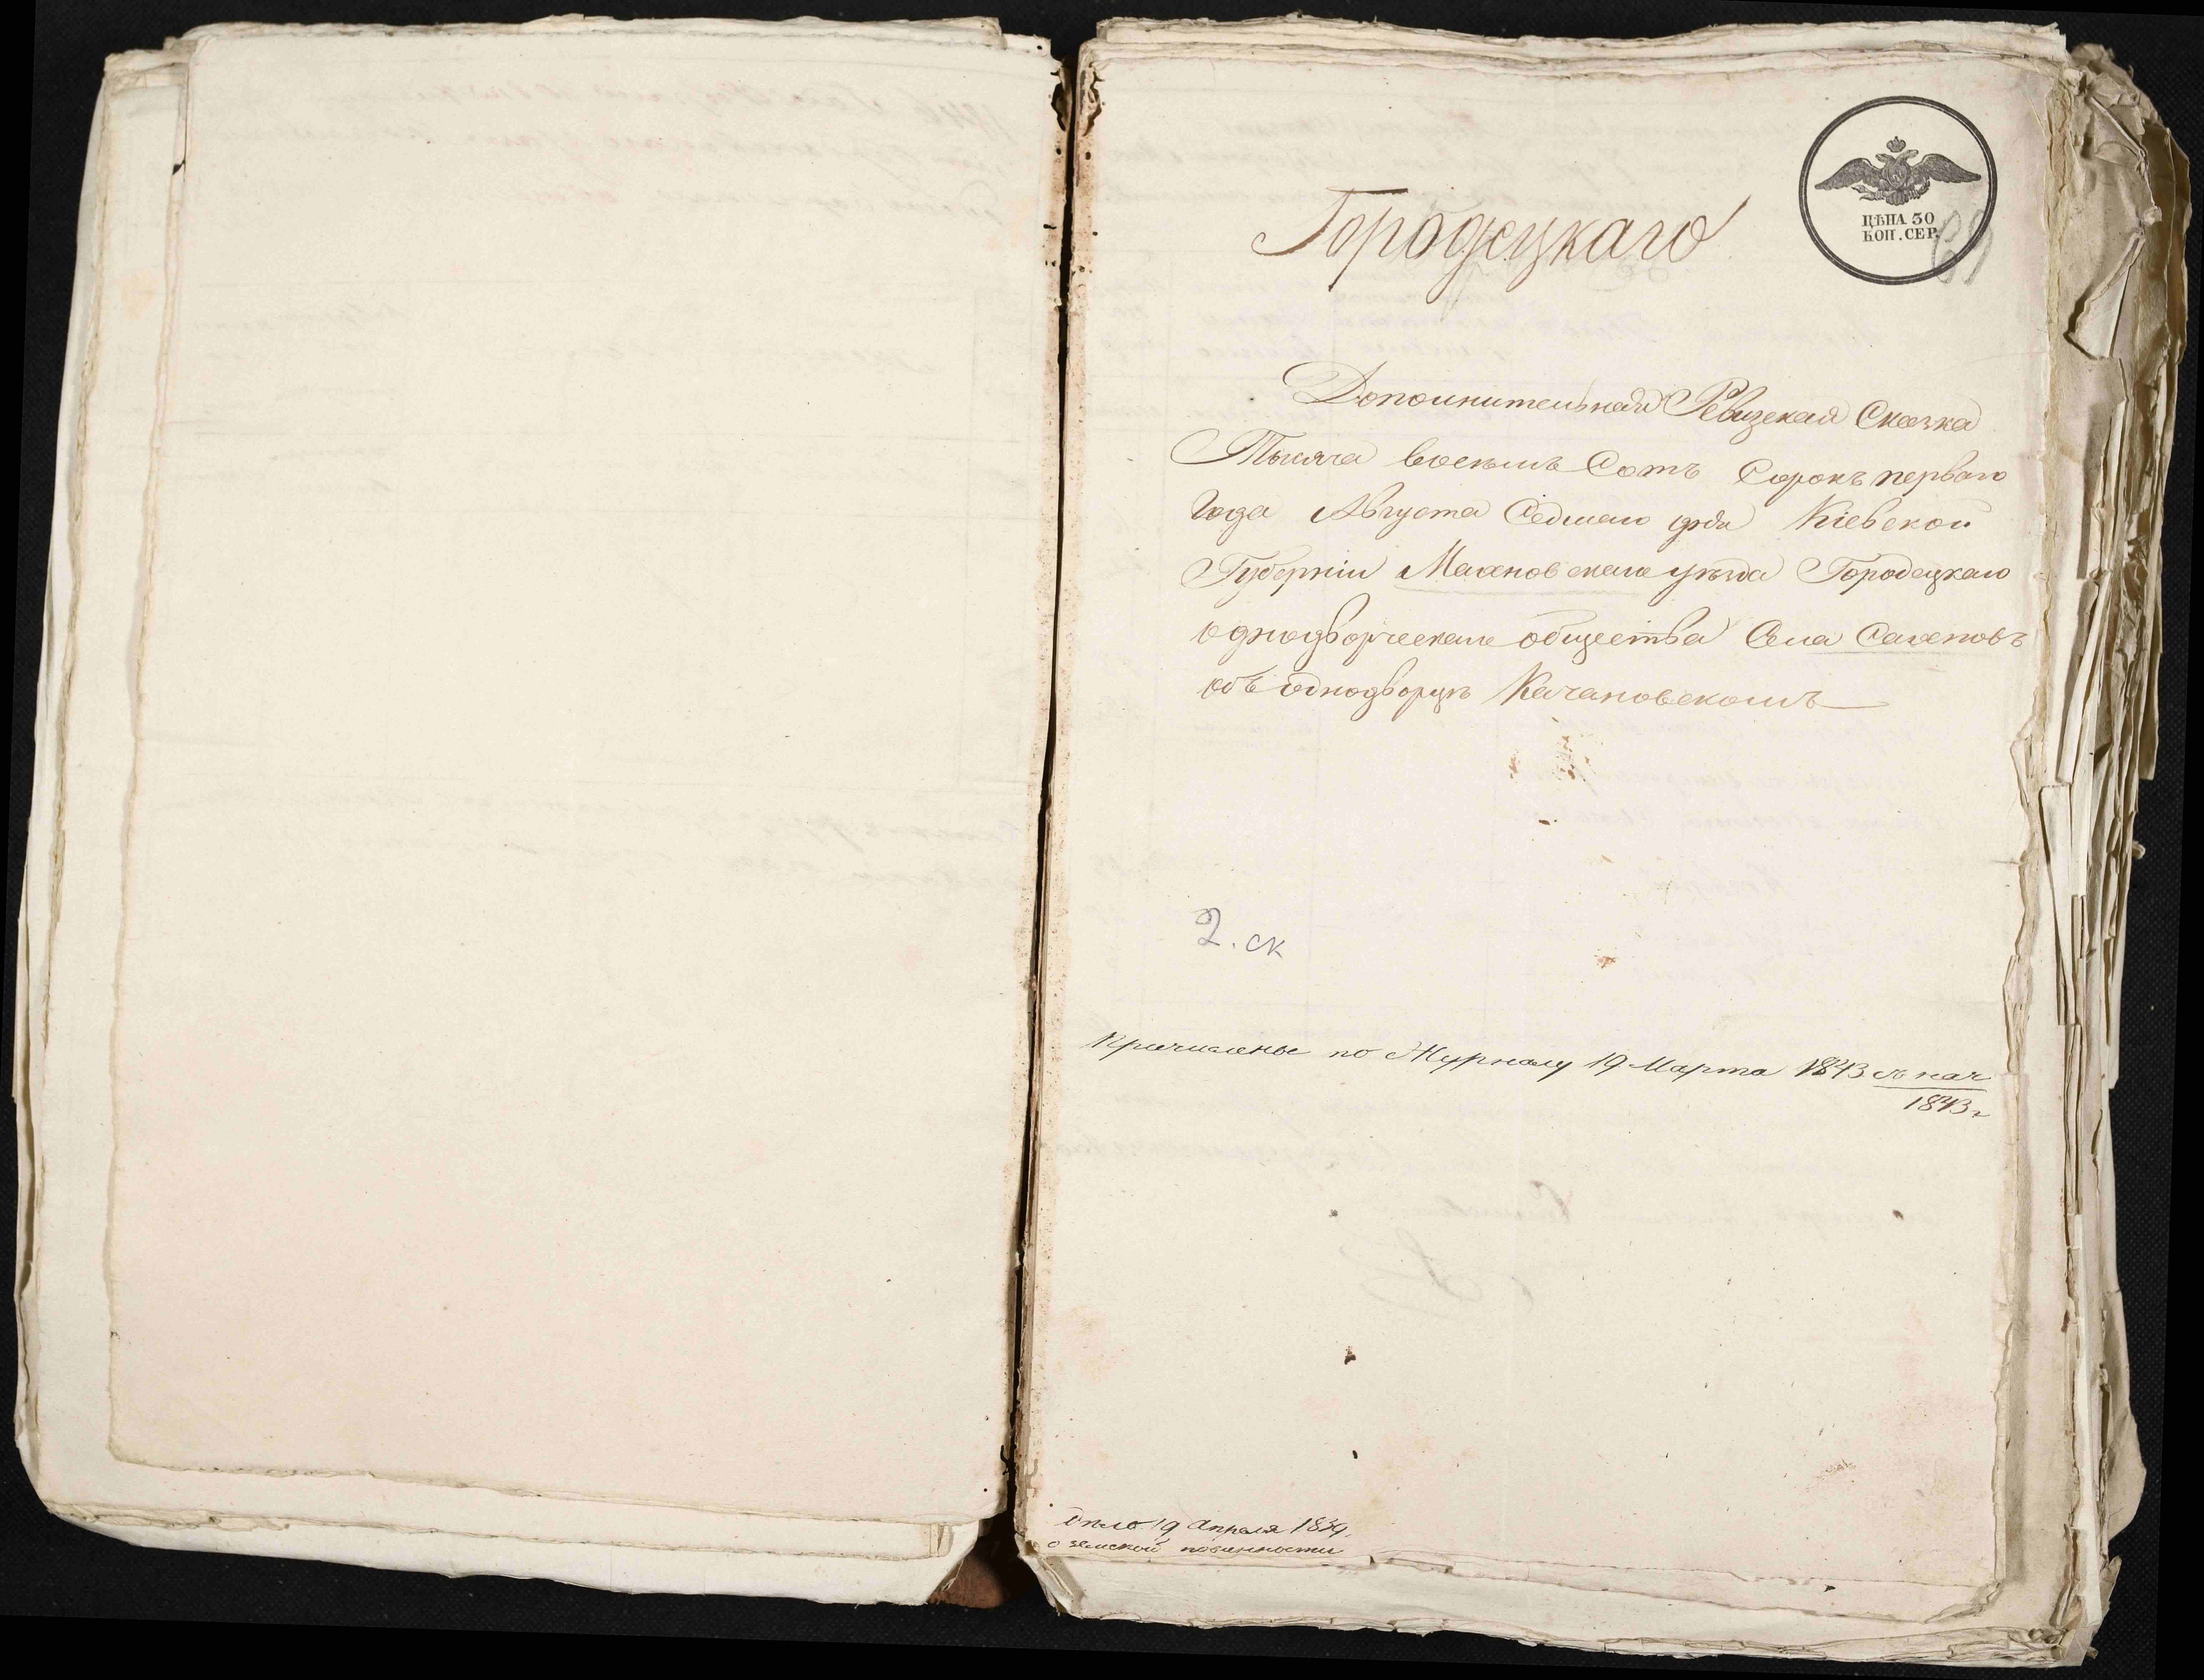 ЦѢНА 30
КОП. СЕР.
69
Городецкаго
Дополнительная Ревизская Сказка
Тысяча восемь Сотъ Сорокъ перваго
Года Августа Седмаго дня Кіевской
Губерніи Махновскаго уѣзда Городецкаго
однодворческаго общества Села
объ однодворцѣ Качановскомъ
2. ск
Причислены по Журналу 19 Марта 1843 съ нач
1843 г
19 Апреля 1839.
о земской повинности